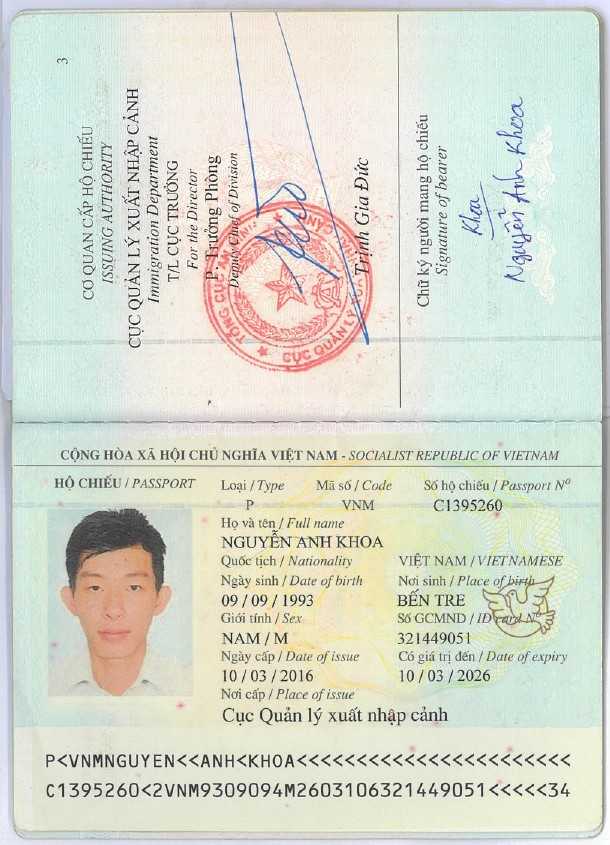 3
CƠ QUAN CẤP HỘ CHIẾU
ISSUING AUTHORITY
CỤC QUẢN LÝ XUẤT NHẬP CẢNH
Immigration Department
T/L CỤC TRƯỞNG
For the Director
P. Trưởng Phòng
Deputy Chief of Division
TỔNG CỤC AN NINH
CỤC QUẢN LÝ XUẤT
Trịnh Gia Đức
Chữ ký người mang hộ chiếu
Signature of bearer
Khoa
Nguyễn Anh Khoa
CỘNG HÒA XÃ HỘI CHỦ NGHĨA VIỆT NAM - SOCIALIST REPUBLIC OF VIETNAM
HỘ CHIẾU / PASSPORT Loại / Type Mã số / Code Số hộ chiếu / Passport Nº
P VNM C1395260
Họ và tên / Full name
NGUYỄN ANH KHOA
Quốc tịch / Nationality VIỆT NAM / VIETNAMESE
Ngày sinh / Date of birth Nơi sinh / Place of birth
09 / 09 / 1993 BẾN TRE
Giới tính / Sex Số GCMND / ID card Nº
NAM / M 321449051
Ngày cấp / Date of issue Có giá trị đến / Date of expiry
10 / 03 / 2016 10 / 03 / 2026
Nơi cấp / Place of issue
Cục Quản lý xuất nhập cảnh
P<VNMNGUYEN<<ANH<KHOA<<<<<<<<<<<<<<<<<<<<<<<
C1395260<2VNM9309094M2603106321449051<<<<<34